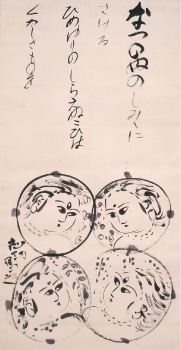 なつのぬのしみに
さける
ひめゆりのしらえぬこひは
くるしきものを